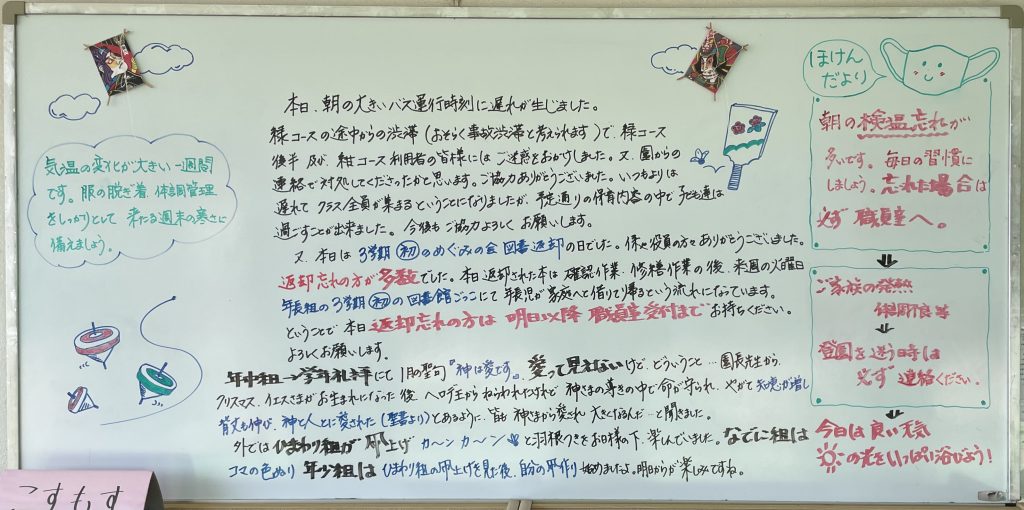 気温の変化が大きい一週間
です。服の脱ぎ着、体調管理
をしっかりとして 来たる週末の寒さに
備えましょう。
本日、朝の大きいバス運行時刻に遅れが生じました。
緑コースの途中からの渋滞(おそらく事故渋滞と考えられます)で、緑コース
後半 及び、紺コース利用者の皆様には ご迷惑をおかけしました。又、園からの
連絡で対処してくださったかと思います。ご協力ありがとうございました。いつもよりは
遅れて クラス全員が集まる ということになりましたが、予定通りの保育内容の中で 子ども達は
過ごすことが出来ました。今後も ご協力よろしく お願いします。
又、本日は 3学期 初 のめぐみの会 図書返却 の日でした。係や役員の方々 ありがとうございました。
返却忘れの方が 多数 でした。本日返却された本は 確認作業、修繕作業の後、来週の火曜日
年長組の3学期 初 の 図書館ごっこにて 年長児が 家庭へと借りて帰るという流れになっています。
ということで 本日 返却忘れの方は 明日以降 職員室受付まで お持ちください。
よろしくお願いします。
年中組→学年礼拝にて 1月の聖句『神は愛です』。愛って見えないけど、どういうこと…園長先生から、
クリスマス、イエスさまが お生まれになった後 ヘロデ王から ねらわれたけれど 神さまの導きの中で 命が守られ やがて 知恵が増し
背丈も伸び、神と人とに愛された(聖書より)とあるように、皆も 神さまから愛され 大きくなるんだ…と聞きました。
外では ひまわり組が 凧上げ カ〜ン カ〜ン と羽根つきを お日様の下、楽しんでいました。なでしこ組は
コマの色ぬり 年少組は ひまわり組の凧上げを見た後、自分の凧作り 始めましたよ。明日からが楽しみですね。
ほけん
だより
朝の検温忘れが
多いです。毎日の習慣に
しましょう。忘れた場合は
必ず 職員室へ。
ご家族の発熱
体調不良等
登園を迷う時は
必ず 連絡ください。
今日は良い天気
の光をいっぱい浴びよう!
こすもす